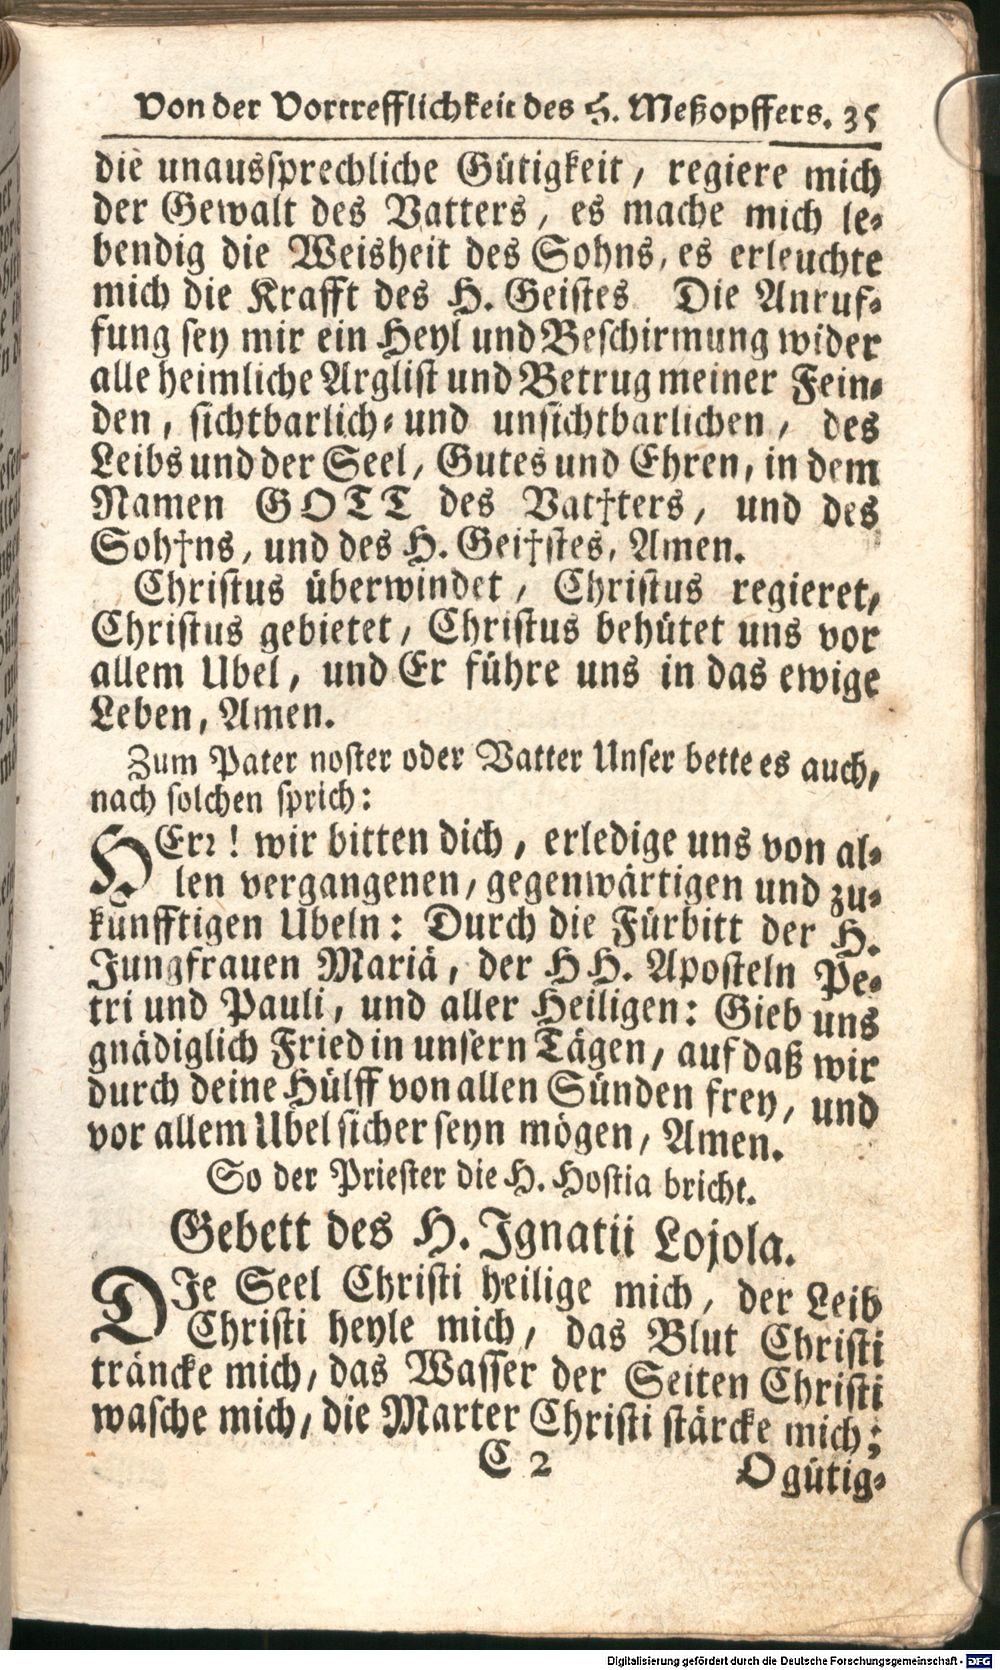 Von der Vortrefflichkeit des H. Meßopffers. 35
die unaussprechliche Gütigkeit, regiere mich
der Gewalt des Vatters, es mache mich le-
bendig die Weisheit des Sohns, es erleuchte
mich die Krafft des H. Geistes Die Anruf-
fung sey mir ein Heyl und Beschirmung wider
alle heimliche Arglist und Betrug meiner Fein-
den, sichtbarlich- und unsichtbarlichen, des
Leibs und der Seel, Gutes und Ehren, in dem
Namen GOTT des Vat†ters, und des
Soh†ns, und des H. Gei†stes, Amen.
Christus überwindet, Christus regieret,
Christus gebietet, Christus behütet uns vor
allem Ubel, und Er führe uns in das ewige
Leben, Amen.
Zum Pater noster oder Vatter Unser bette es auch,
nach solchen sprich:
HErr! wir bitten dich, erledige uns von al-
len vergangenen, gegenwärtigen und zu-
künfftigen Ubeln: Durch die Fürbitt der H.
Jungfrauen Mariä, der HH. Aposteln Pe-
tri und Pauli, und aller Heiligen: Gieb uns
gnädiglich Fried in unsern Tägen, auf daß wir
durch deine Hülff von allen Sünden frey, und
vor allem Ubel sicher seyn mögen, Amen.
So der Priester die H. Hostia bricht.
Gebett des H. Ignatii Lojola.
DIe Seel Christi heilige mich, der Leib
Christi heyle mich, das Blut Christi
träncke mich, das Wasser der Seiten Christi
wasche mich, die Marter Christi stärcke mich;
C 2 O gütig-
Digitalisierung gefördert durch die Deutsche Forschungsgemeinschaft - DFG